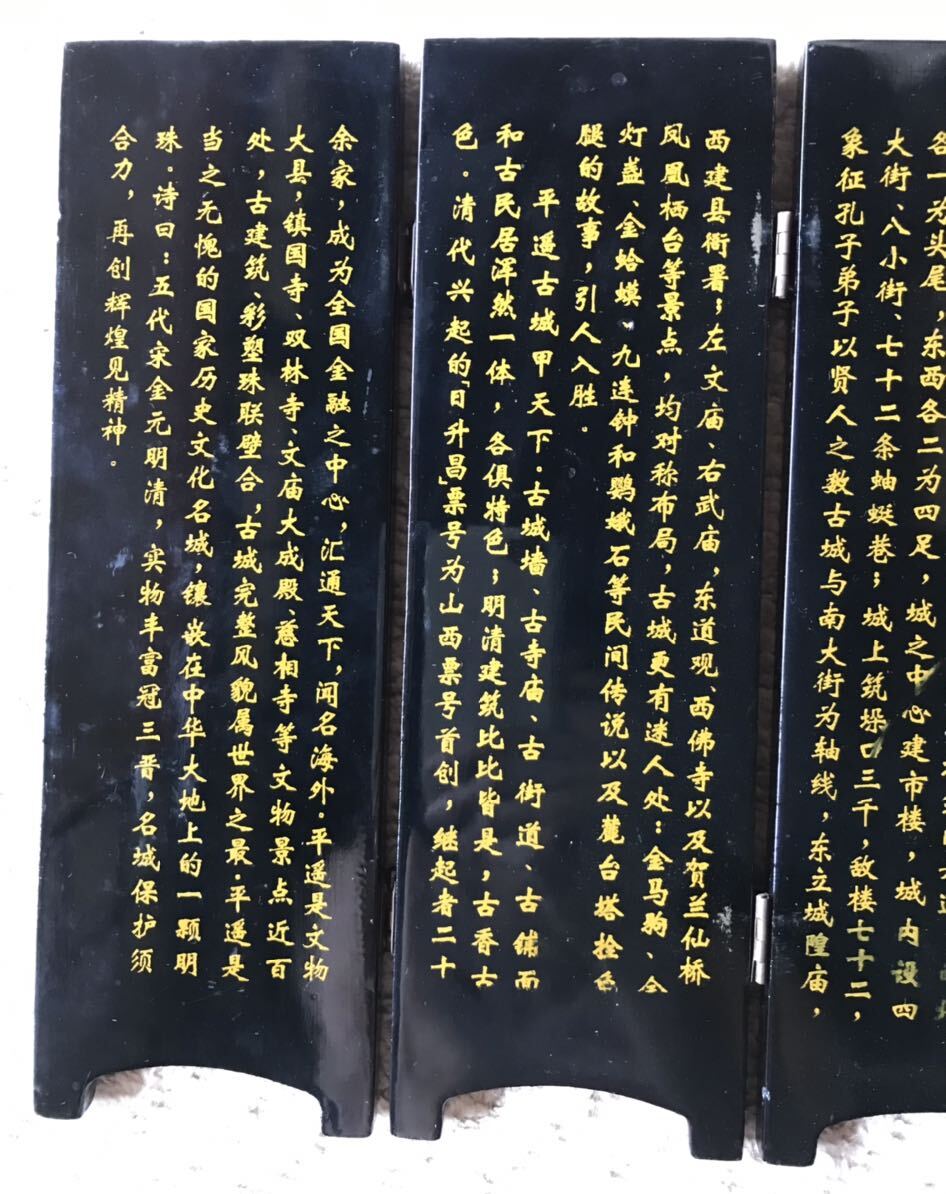 各一为头尾,东西各二为四足,城之中心建市楼,城内设四
大街、八小街、七十二条蚰蜒巷;城上筑垛口三千,敌楼七十二,
象征孔子弟子以贤人之数古城与南大街为轴线,东立城隍庙,
西建县衙署;左文庙、右武庙,东道观、西佛寺以及贺兰仙桥
凤凰栖台等景点,均对称布局,古城更有迷人处:金马驹、金
灯盏、金蛤蟆、九连钟和鹦蛾石等民间传说以及麓台塔拴色
腿的故事,引人入胜。
平遥古城甲天下.古城墙、古寺庙、古街道、古铺面
和古民居浑然一体,各俱特色;明清建筑比比皆是,古香古
色.清代兴起的「日升昌」票号为山西票号首创,继起者二十
余家,成为全国金融之中心,汇通天下,闻名海外.平遥是文物
大县,镇国寺、双林寺、文庙大成殿、慈相寺等文物景点近百
处,古建筑、彩塑珠联壁合,古城完整风貌属世界之最.平遥是
当之无愧的国家历史文化名城,镶嵌在中华大地上的一颗明
珠.诗曰:五代宋金元明清,实物丰富冠三晋,名城保护须
合力,再创辉煌见精神。